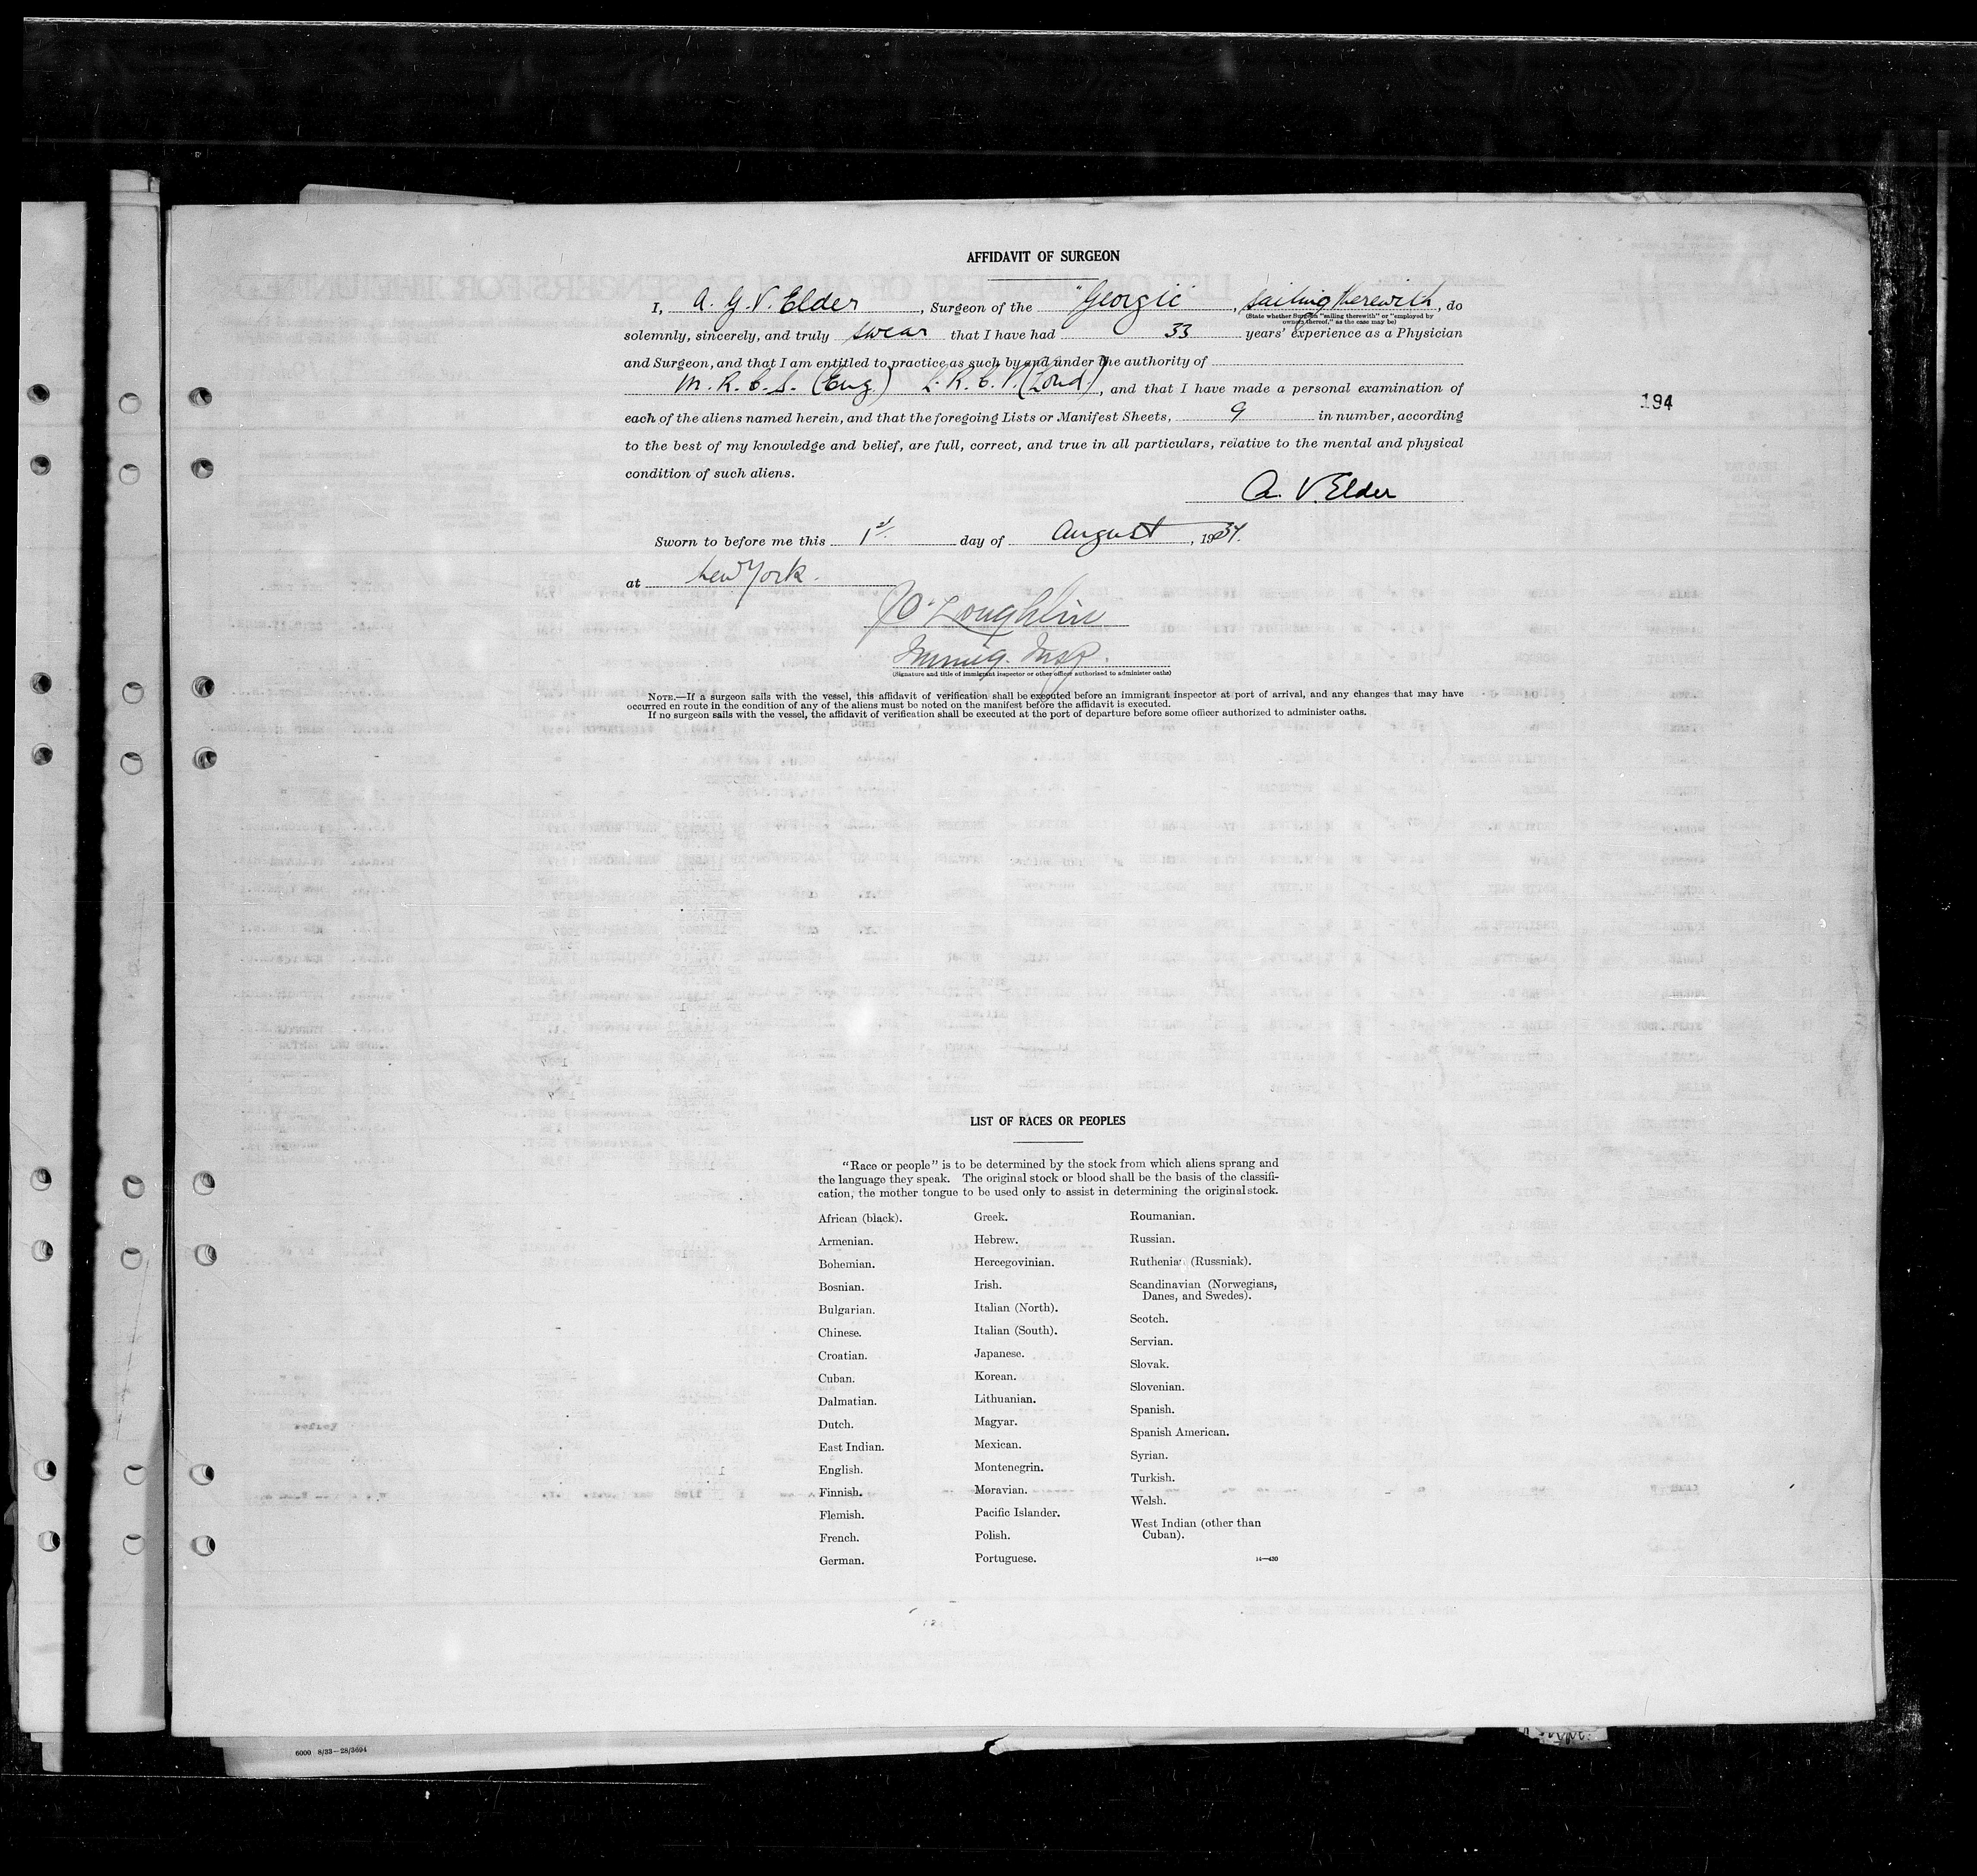 AFFIDAVIT OF SURGEON
I, A. G. V. Elder, Surgeon of the "Georgic", sailing therewith, do
(State whether Surgeon "sailing therewith" or "employed by
owners thereof," as the case may be)
solemnly, sincerely, and truly swear that I have had 33 years' experience as a Physician
and Surgeon, and that I am entitled to practice as such by and under the authority of
M. R. C. S. (Eng.) L. R. C. P. (Lond.), and that I have made a personal examination of
each of the aliens named herein, and that the foregoing Lists or Manifest Sheets, 9 in number, according
194
to the best of my knowledge and belief, are full, correct, and true in all particulars, relative to the mental and physical
condition of such aliens.
A. V. Elder
Sworn to before me this 1st day of August, 1934.
at New York.
O'Loughlin
Immig. Insp.
(Signature and title of immigrant inspector or other officer authorized to administer oaths)
NOTE.—If a surgeon sails with the vessel, this affidavit of verification shall be executed before an immigrant inspector at port of arrival, and any changes that may have
occurred en route in the condition of any of the aliens must be noted on the manifest before the affidavit is executed.
If no surgeon sails with the vessel, the affidavit of verification shall be executed at the port of departure before some officer authorized to administer oaths.
LIST OF RACES OR PEOPLES
"Race or people" is to be determined by the stock from which aliens sprang and
the language they speak. The original stock or blood shall be the basis of the classifi-
cation, the mother tongue to be used only to assist in determining the original stock.
African (black).
Armenian.
Bohemian.
Bosnian.
Bulgarian.
Chinese.
Croatian.
Cuban.
Dalmatian.
Dutch.
East Indian.
English.
Finnish.
Flemish.
French.
German.
Greek.
Hebrew.
Hercegovinian.
Irish.
Italian (North).
Italian (South).
Japanese.
Korean.
Lithuanian.
Magyar.
Mexican.
Montenegrin.
Moravian.
Pacific Islander.
Polish.
Portuguese.
Roumanian.
Russian.
Ruthenian (Russniak).
Scandinavian (Norwegians,
Danes, and Swedes).
Scotch.
Servian.
Slovak.
Slovenian.
Spanish.
Spanish American.
Syrian.
Turkish.
Welsh.
West Indian (other than
Cuban).
14—430
6000 8/33—28/3694